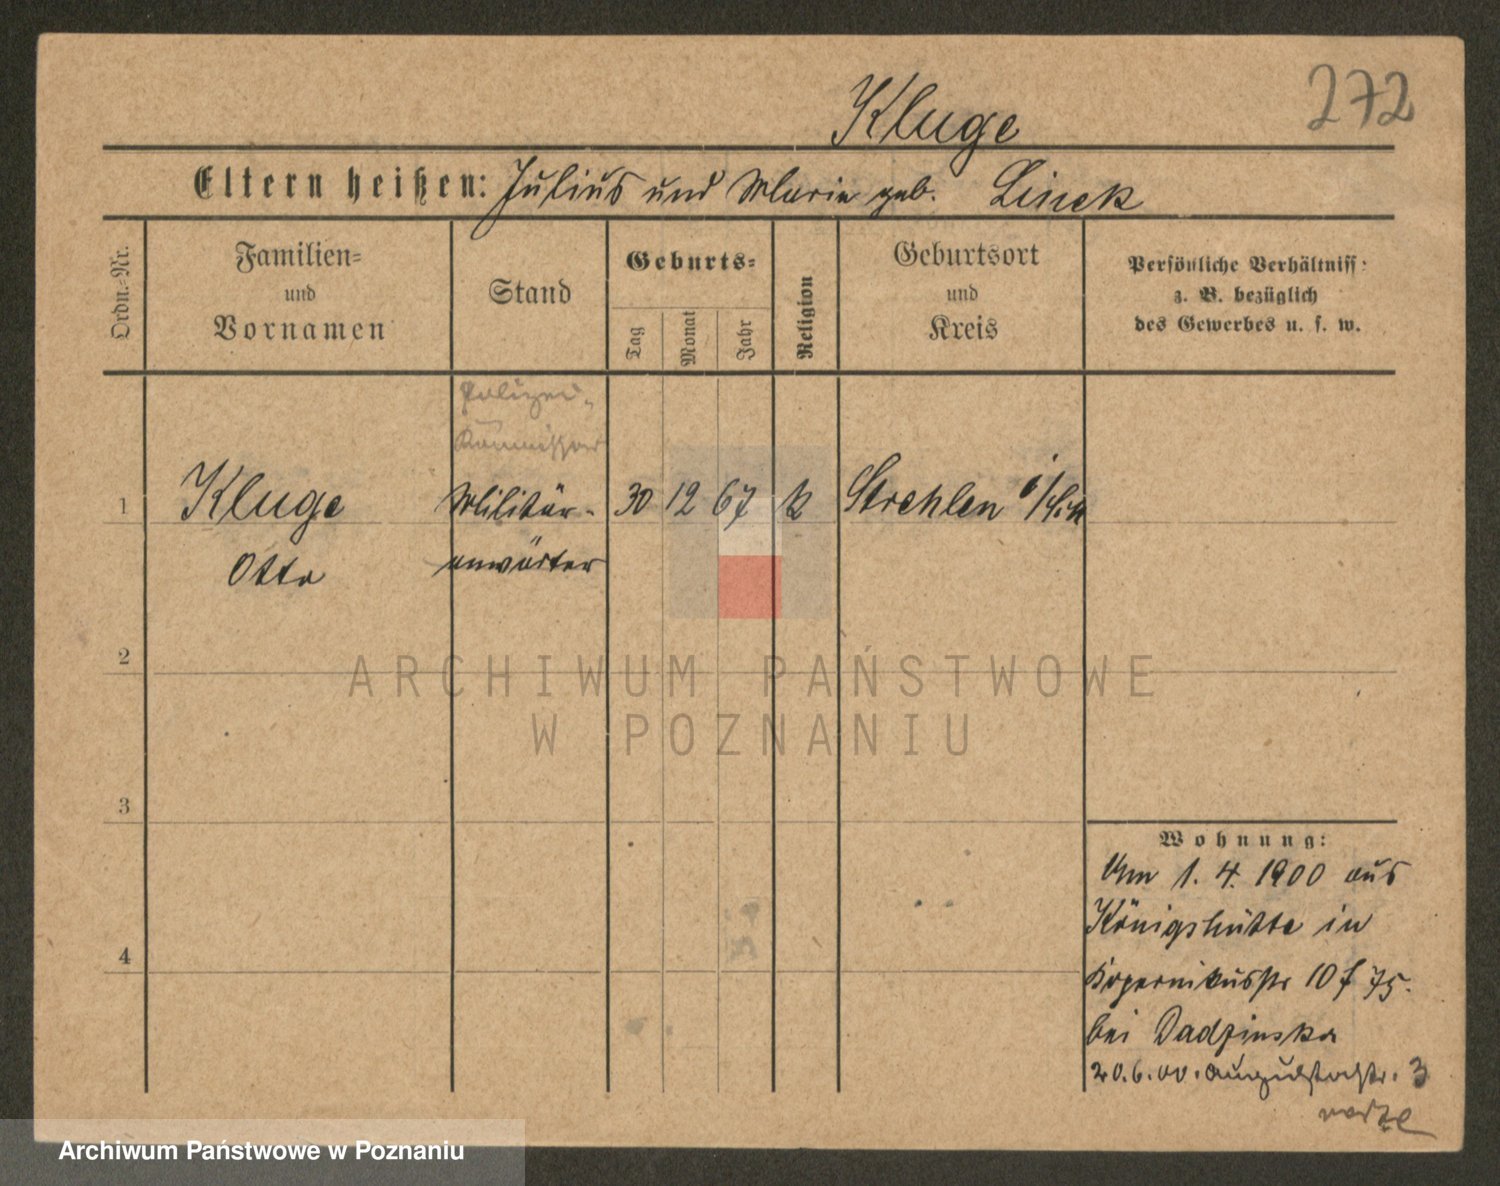 272
Kluge
Eltern heißen: Julius und Marie geb. Linek
Ordn.-Nr.
Familien-
und
Vornamen
Stand
Geburts-
Tag
Monat
Jahr
Religion
Geburtsort
und
Kreis
Persönliche Verhältniss
z. B. bezüglich
des Gewerbes u. s. w.
Polizei-
Kommissar
1
Kluge
Militär-
30 12 67 k
Strehlen i/Schl
Otto
anwärter
2
ARCHIWUM PAŃSTWOWE
W POZNANIU
3
4
Wohnung:
Am 1. 4. 1900 aus
Königshütte in
Kopernikusstr 10 f 75.
bei Dadzinska
20.6.00. Augustastr. 3
Archiwum Państwowe w Poznaniu